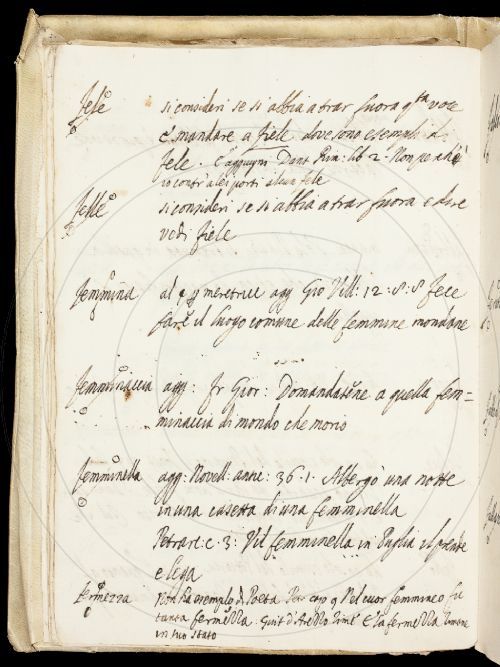 Fele si consideri se si abbia a trar fuora qta voce
e mandare a fiele dove sono esempli di
fele. E aggiugni Dant. Rim: lib. 2. Non perch'è
incontr' a lei porti alcun fele
Felle si consideri se si abbia a trar fuora e dire
vedi fiele
Femmina al § p meretrice agg Gio Vill: 12:8:8 fece
fare il luogo comune delle femmine mondane
Femminaccia agg: Fr Gior: Domandatene a quella fem=
minaccia di mondo che morio
Femminella agg: Novell: antic: 36.1. Albergò una notte
in una casetta di una femminella
Petrarc: c. 3: Vil femminella in Puglia il prende
e lega
Fermezza Non ha esempio di Poeta Nel cuor femmineo fu
tanta fermezza: Guit d'Arezzo Rime E la fermezza
in suo stato